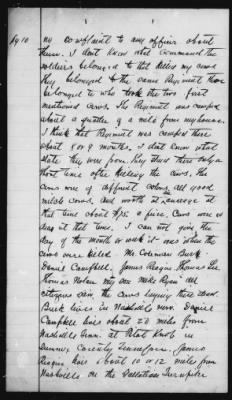 pg 10
my complaint to any officer about
them. I don't know what command the
soldiers belonged to that killed my cows
they belonged to the same Regiment that
belonged to who took the two first
mentioned cows. The Regiment was camped
about a quarter of a mile from my house.
I think that Regiment was camped there
about 8 or 9 months. I don't know what
State they were from. They stayed there only a
short time after killing the cows. The
cows were of different colors, all good
milch cows, and worth at average at
that time about $75 a piece. Cows were
high at that time. I can not give the
day of the month or week it was when the
cows were killed. Mr. Coleman Burk
Daniel Campbell, James Reagan Thomas Lee
Thomas Nolan my son Mike Ryan all
citizens saw the cows laying there dead.
Burk lives in Nashville now. Daniel
Campbell lives about 20 miles from
Nashville Tenn. at Pilot Knob in
Sumner County Tennessee. James
Reagan lives about 10 or 12 miles from
Nashville on the Gallatin Turnpike